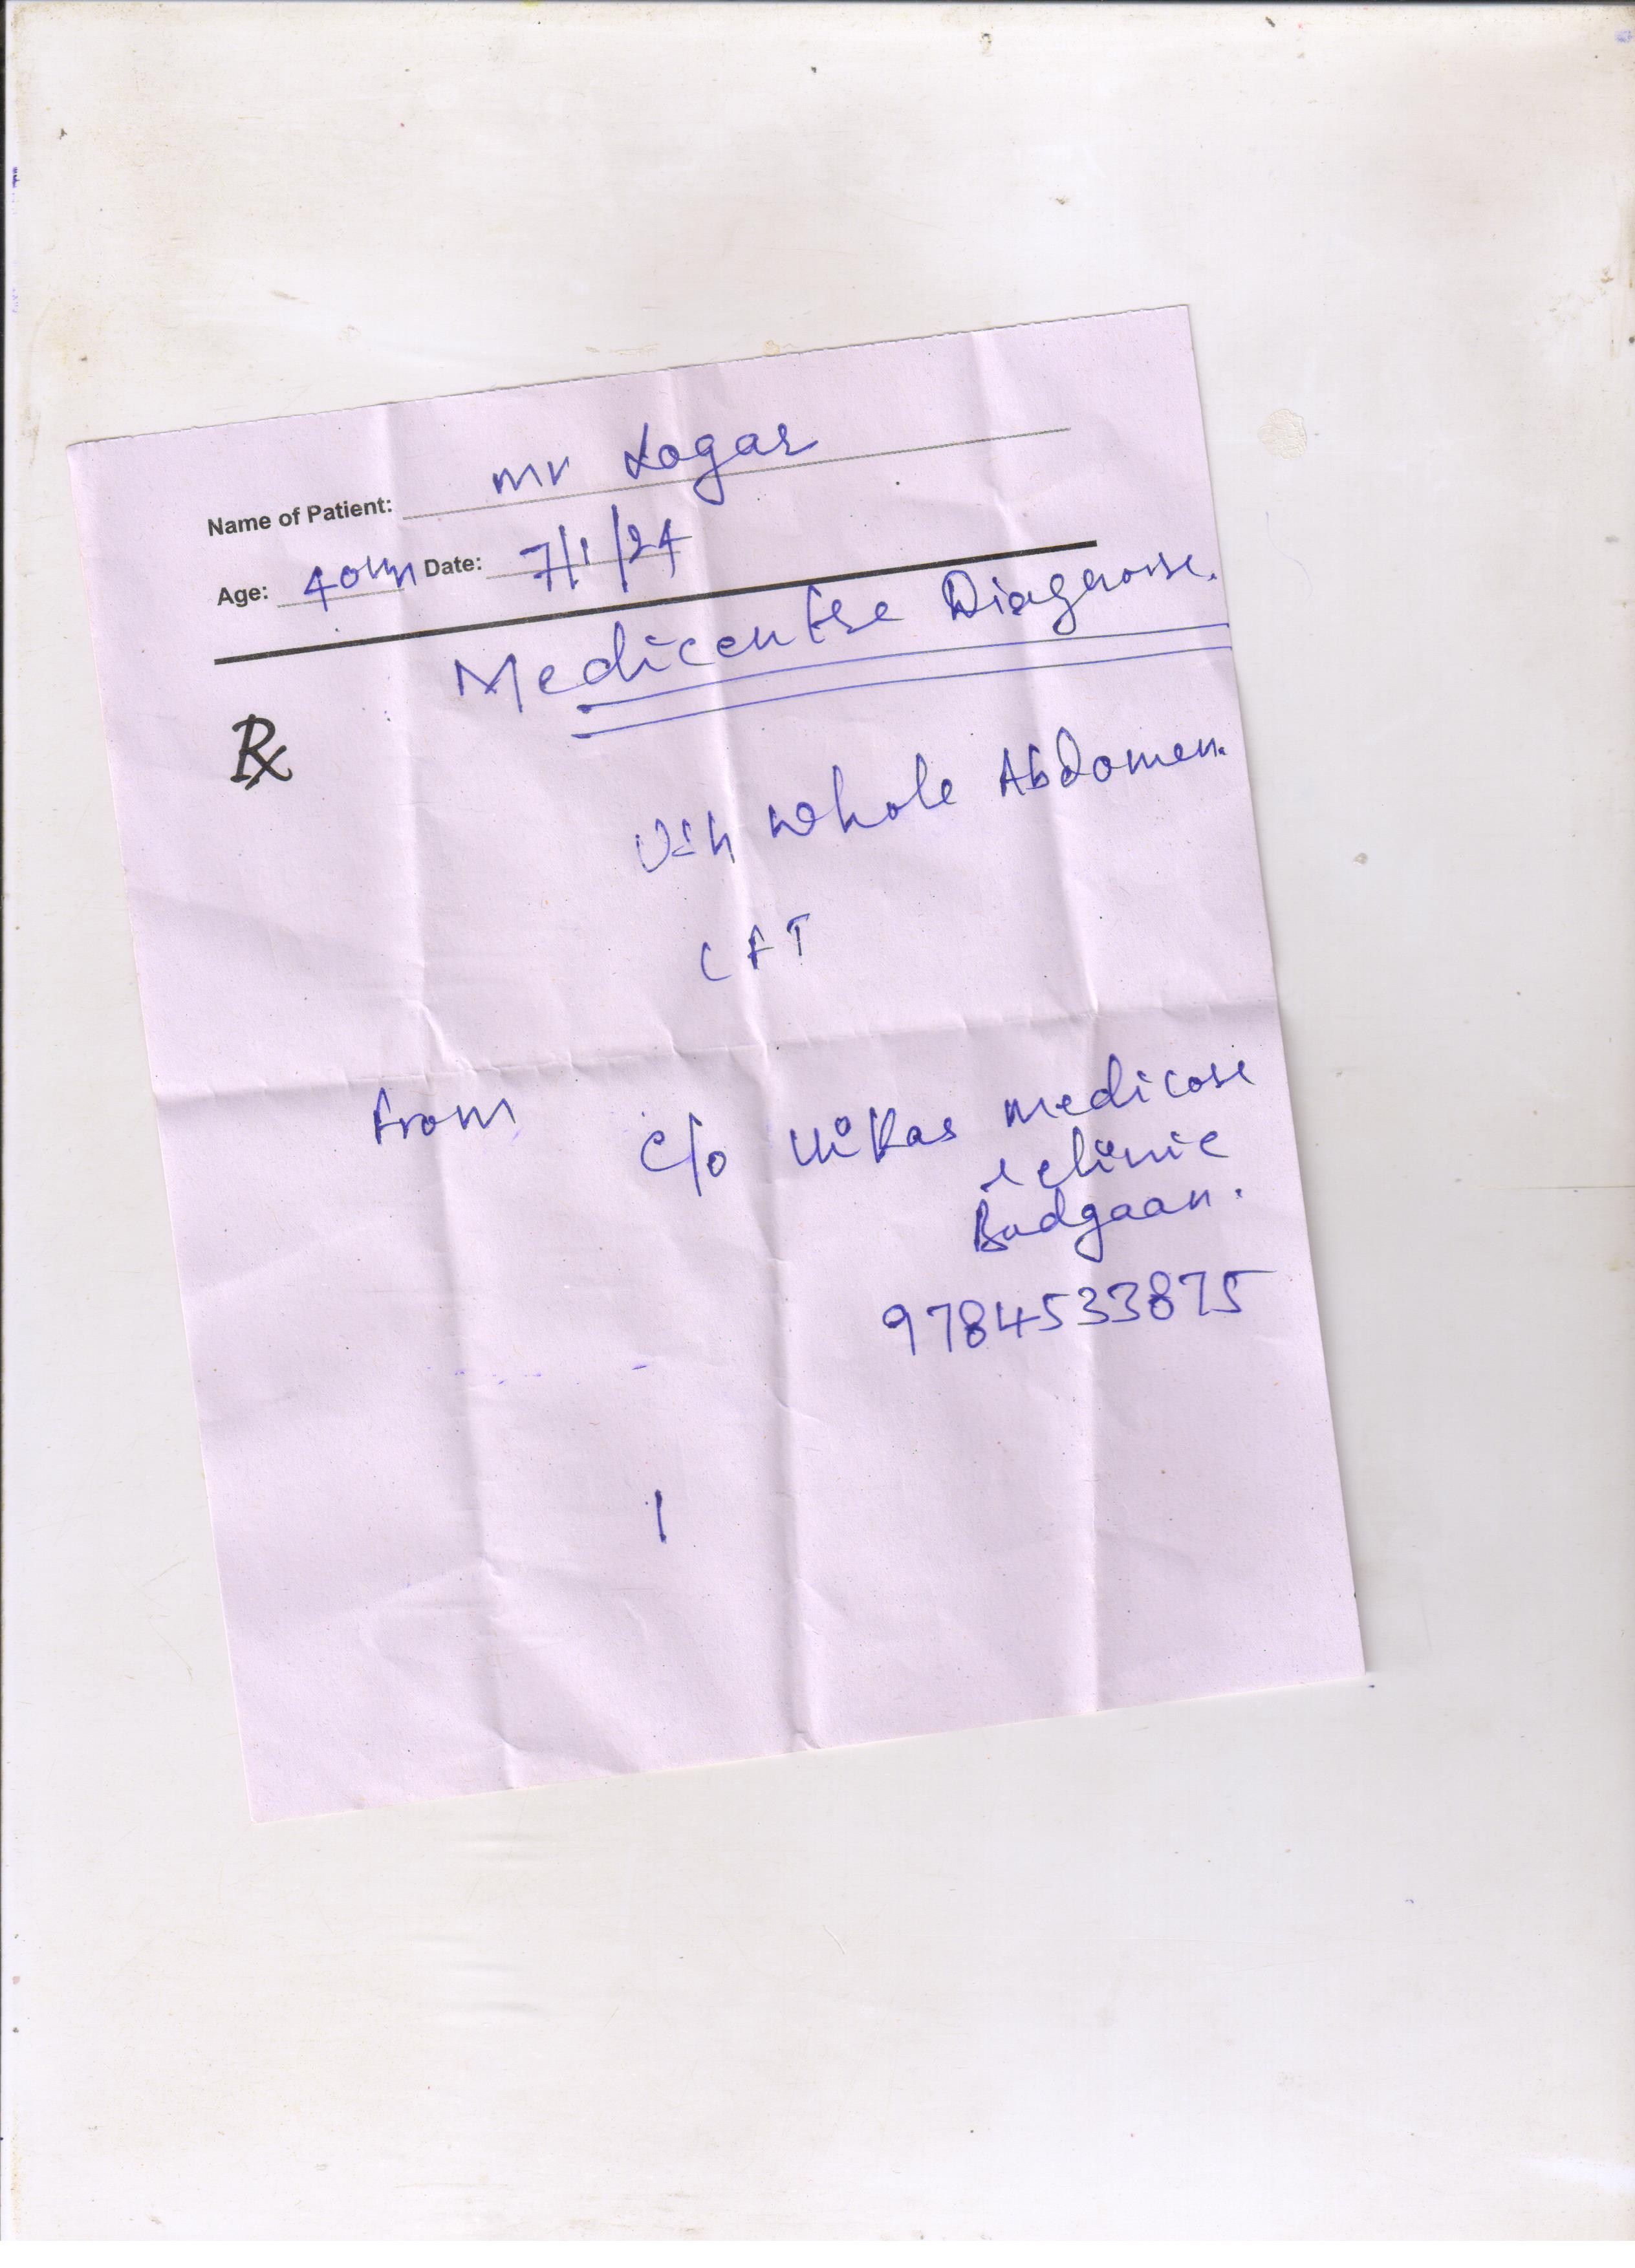 Name of Patient: mr Logar
Age: 40 Date: 7/1/24
Medicentre Diagnose.
Rx
whole Abdomen.
From c/o Vikas medicose
clinic
Badgaan.
9784533875